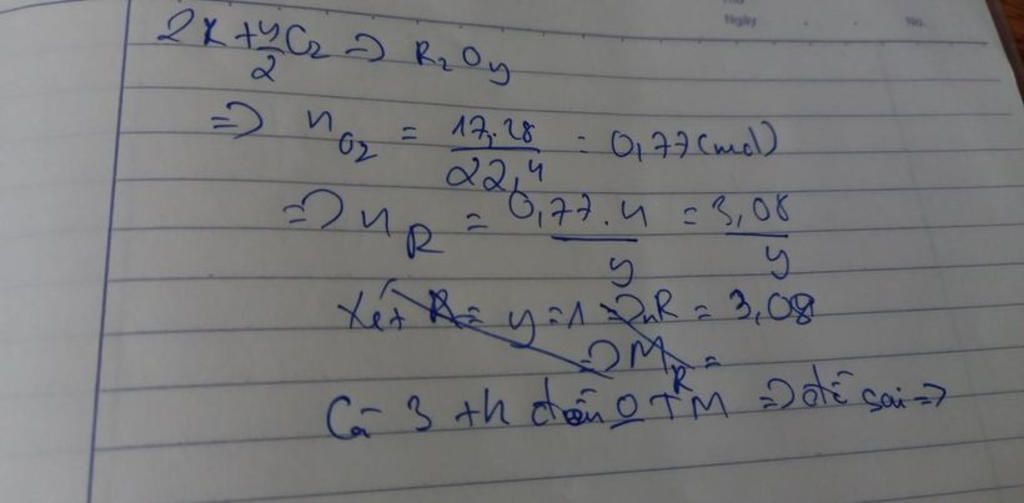 Ngày No.
2R + y/2 O2 => R2Oy
=> nO2 = 17.28/22,4 = 0,77 (mol)
=> nR = 0,77.4/y = 3,08/y
Xét R = y = 1 => nR = 3,08
=> MR =
Cả 3 th đều O TM => đề sai =>